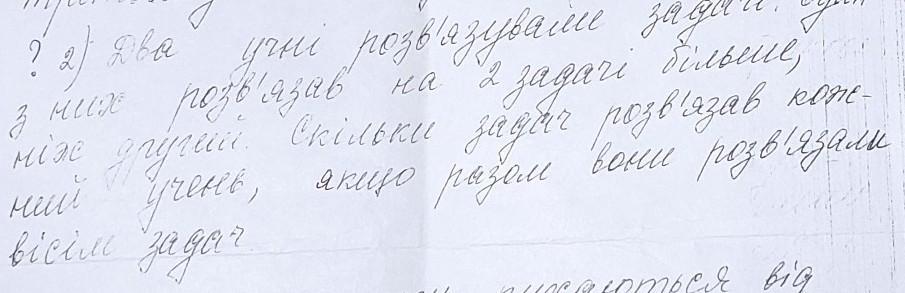 ? 2) Два учні розв'язували задачі. Один
з них розв'язав на 2 задачі більше,
ніж другий. Скільки задач розв'язав кож-
ний учень, якщо разом вони розв'язали
вісім задач.
від